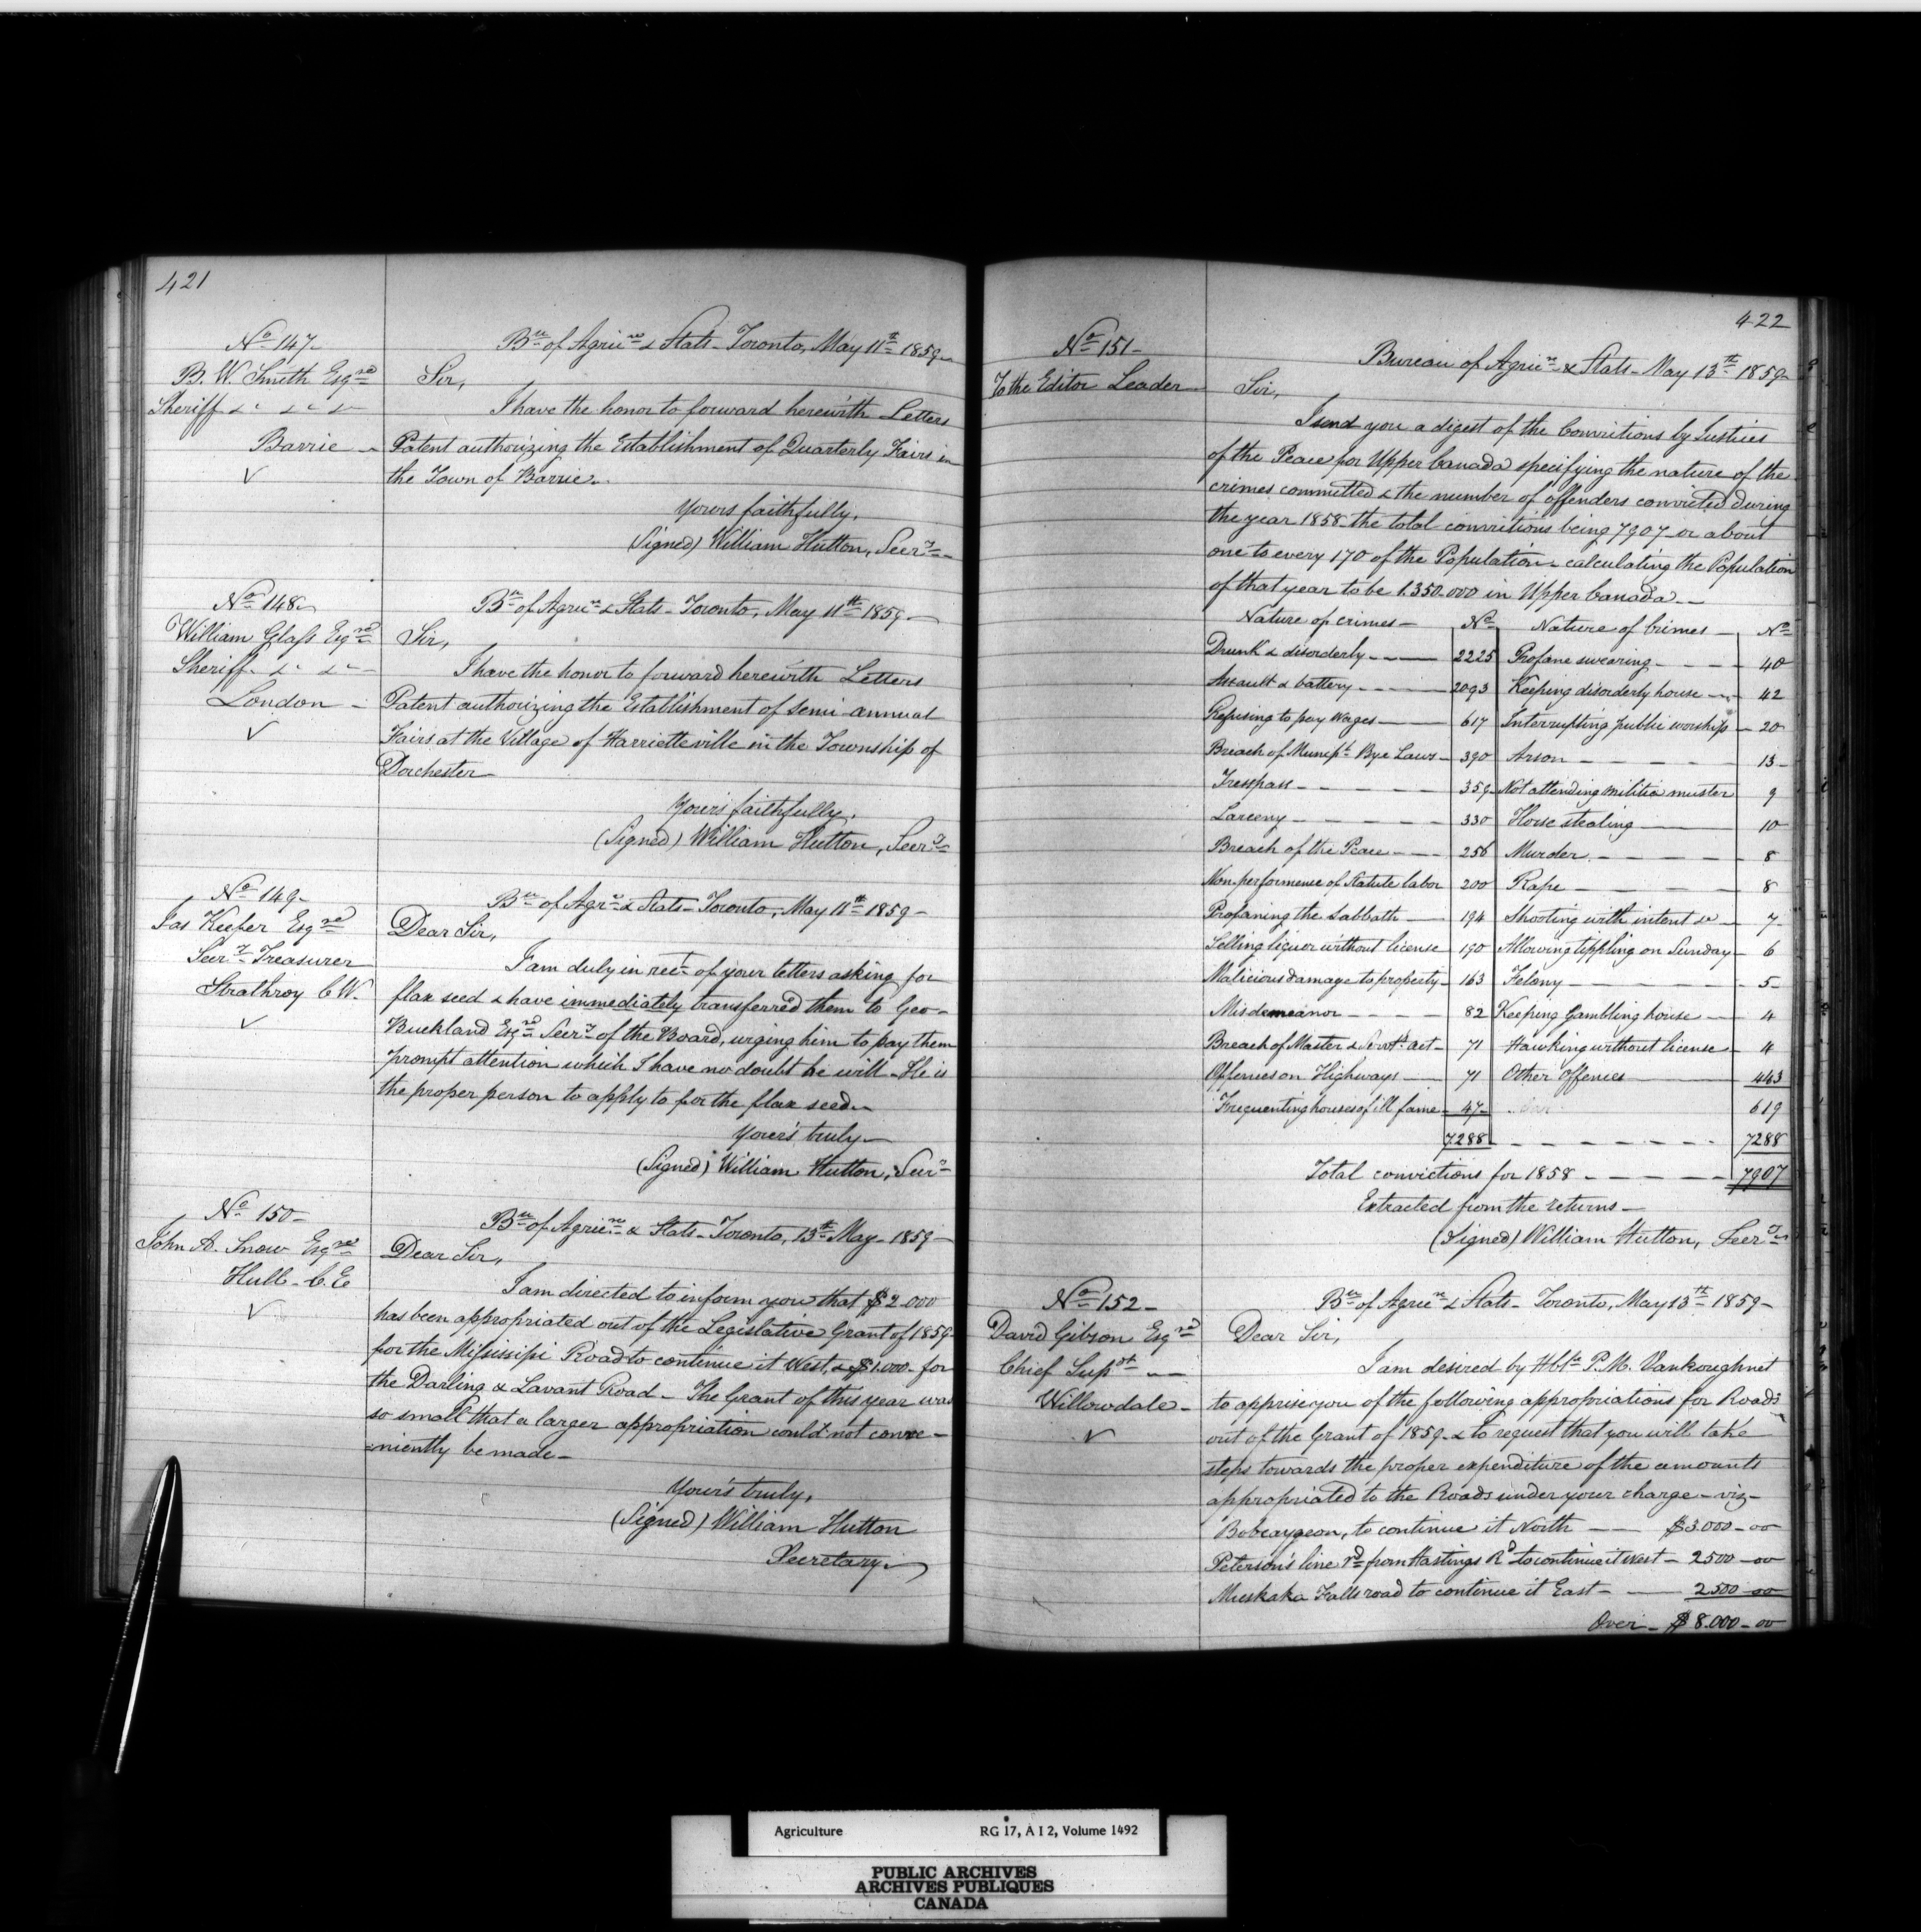 421
No 147
B. W. Smith Esqre
Sheriff &c &c &c
Barrie
Bu of Agrice & Stats - Toronto, May 11th 1859
Sir,
I have the honor to forward herewith Letters
Patent authorizing the Establishment of Quarterly Fairs in
the Town of Barrie.
Yours faithfully,
(Signed) William Hutton, Secry
No 148
William Glass Esqre
Sheriff &c &c
London
Bu of Agrice & Stats - Toronto, May 11th 1859
Sir,
I have the honor to forward herewith Letters
Patent authorizing the Establishment of semi-annual
Fairs at the Village of Harrietteville in the Township of
Dorchester
Your's faithfully,
(Signed) William Hutton, Secry
No 149
Jas Keefer Esqre
Secry Treasurer
Strathroy C.W.
Bu of Agre & Stats - Toronto, May 11th 1859
Dear Sir,
I am duly in rect of your letters asking for
flax seed & have immediately transferred them to Geo-
Buckland Esqre Secry of the Board, urging him to pay them
prompt attention which I have no doubt he will - He is
the proper person to apply to for the flax seed
Your's truly
(Signed) William Hutton, Secry
No 150
John A. Snow Esqre
Hull - C.E
Bu of Agrice & Stats - Toronto, 13th May - 1859
Dear Sir,
I am directed to inform you that $2.000
has been appropriated out of the Legislative Grant of 1859
for the Missisipi Road to continue it West, & $1.000 - for
the Darling & Lavant Road - The Grant of this year was
so small that a larger appropriation could not conve-
=niently be made -
Your's truly,
(Signed) William Hutton
Secretary
422
No 151
To the Editor Leader
Bureau of Agrice & Stats - May 13th 1859
Sir,
I send you a digest of the Convictions by Justices
of the Peace for Upper Canada specifying the nature of the
crimes committed & the number of offenders convicted during
the year 1858 the total convictions being 7907 or about
one to every 170 of the Population - calculating the Population
of that year to be 1.350.000 in Upper Canada
Nature of crimes - No Nature of Crimes - No
Drunk & disorderly 2225 Profane swearing 40
Assault & battery 2093 Keeping disorderly house 42
Refusing to pay Wages 617 Interrupting public worship 20
Breach of Municpl Bye Laws 390 Arson 13
Tresspass 359 Not attending militia muster 9
Larceny 330 Horse stealing 10
Breach of the Peace 256 Murder 8
Non-performence of Statute labor 200 Rape 8
Profaning the Sabbath 194 Shooting with intent &c 7
Selling liquor without license 190 Allowing tippling on Sunday 6
Malicious damage to property 163 Felony 5
Misdemeanor 82 Keeping Gambling house 4
Breach of Master & Servts act 71 Hawking without license 4
Offences on Highways 71 Other offences 443
Frequenting houses of ill fame 47 619
7288 7288
Total convictions for 1858 7907
Extracted from the returns
(Signed) William Hutton, Secry
No 152
David Gibson Esqre
Chief Supdt
Willowdale
Bu of Agrice & Stats - Toronto, May 13th 1859
Dear Sir,
I am desired by Hble P.M. Vankoughnet
to apprise you of the following appropriations for Roads
out of the Grant of 1859 - & to request that you will take
steps towards the proper expenditure of the amounts
appropriated to the Roads under your charge - viz -
Bobcaygeon, to continue it North $3.000-00
Peterson's line rd from Hastings Rd to continue it west - 2500-00
Muskaka Falls road to continue it East - 2500 00
Over - $8.000-00
Agriculture RG 17, A I 2, Volume 1492
PUBLIC ARCHIVES
ARCHIVES PUBLIQUES
CANADA